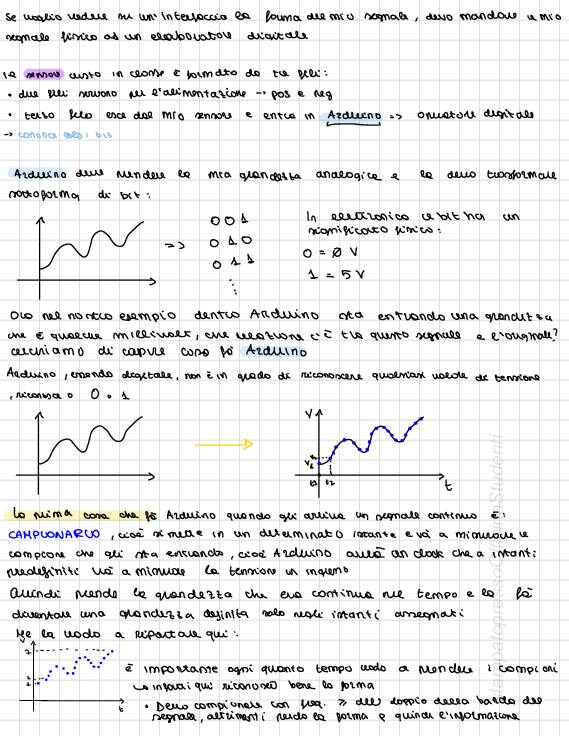 Se voglio vedere su un' interfaccia la forma del mio segnale, devo mandare il mio
segnale fisico ad un elaboratore digitale
Il sensore visto in classe è formato da tre fili:
• due fili servono per l'alimentazione → pos e neg
• terzo filo esce dal mio sensore e entra in Arduino => digitale
→ conosce solo i bit
Arduino deve prendere la mia grandezza analogica e la deve trasformare
sottoforma di bit:
=>
0 0 1
0 1 0
0 1 1
In elettronica il bit ha un
significato fisico:
0 = 0 V
1 = 5 V
Ora nel nostro esempio dentro Arduino sta entrando una grandezza
che è qualche millivolt, che relazione c'è tra questo segnale e l'originale?
cerchiamo di capire cosa fa Arduino
Arduino, essendo digitale, non è in grado di riconoscere qualsiasi valore di tensione
, riconosce 0 o 1
V
t
t1 t2
La prima cosa che fa Arduino quando gli arriva un segnale continuo è:
CAMPIONARLO, cioè si mette in un determinato istante e va a misurare il
campione che gli sta entrando, cioè Arduino avrà un clock che a istanti
predefiniti va a misurare la tensione in ingresso
Quindi prende la grandezza che era continua nel tempo e la fa
diventare una grandezza definita solo negli istanti assegnati
Me la vado a riportare qui:
t
è importante ogni quanto tempo vado a prendere i campioni
↳ infatti qui riconosco bene la forma
• Devo campionare con freq. ≥ del doppio della banda del
segnale, altrimenti perdo la forma e quindi l'informazione